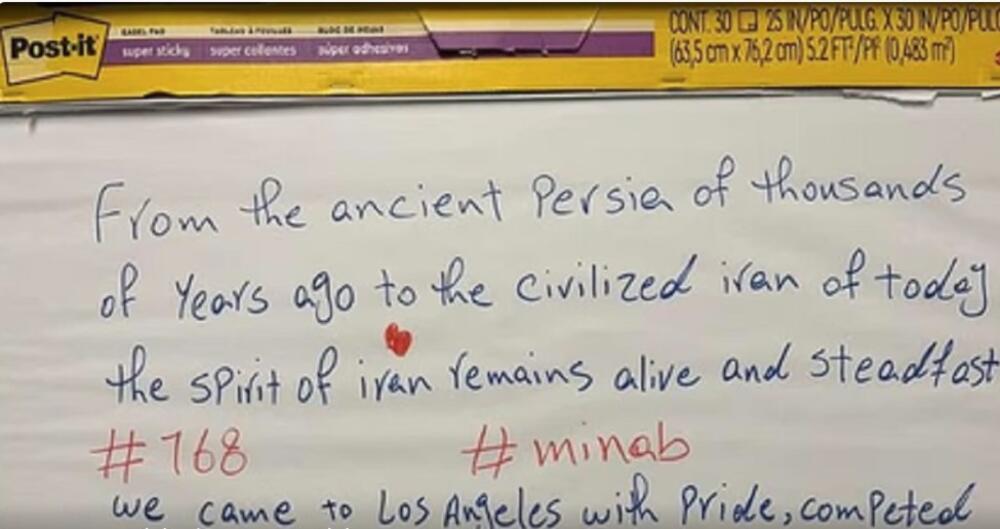 Post-it
EASEL PAD
super sticky
TABLEAU À FEUILLES
super collantes
súper adhesivos
CONT. 30 25 IN/PO/PULG. X 30 IN/PO/PULG
(63,5 cm x 76,2 cm) 5.2 FT²/PI² (0,483 m²)
From the ancient Persia of thousands
of Years ago to the civilized iran of today
the spirit of iran remains alive and steadfast
#168 #minab
we came to Los Angeles with Pride, competed